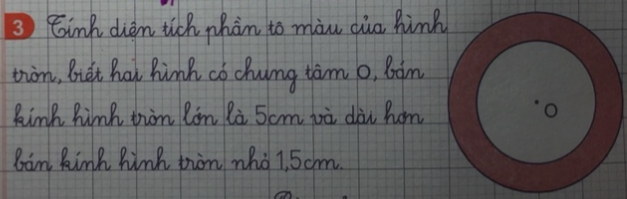 3 Tính diện tích phần tô màu của hình
tròn, biết hai hình có chung tâm O, bán
kính hình tròn lớn là 5cm và dài hơn
bán kính hình tròn nhỏ 1,5cm.
O